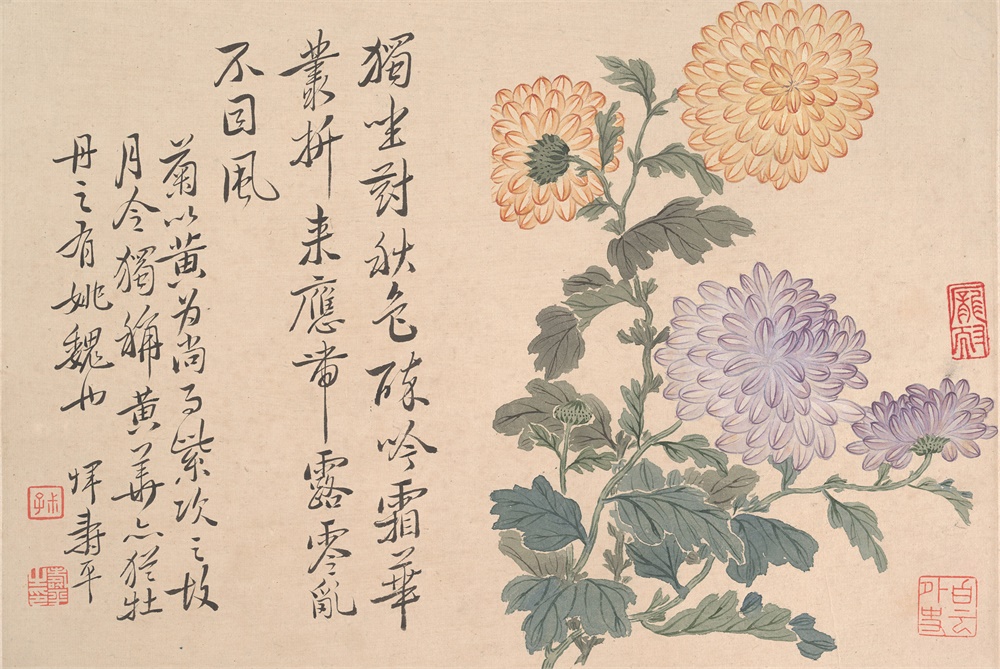 獨坐對秋色醉吟霜華
叢拆来應帶露零亂
不因風
菊以黄为尚而紫次之故
月令獨稱黄華亦猶牡
丹之有姚魏也 惲壽平
白云外史